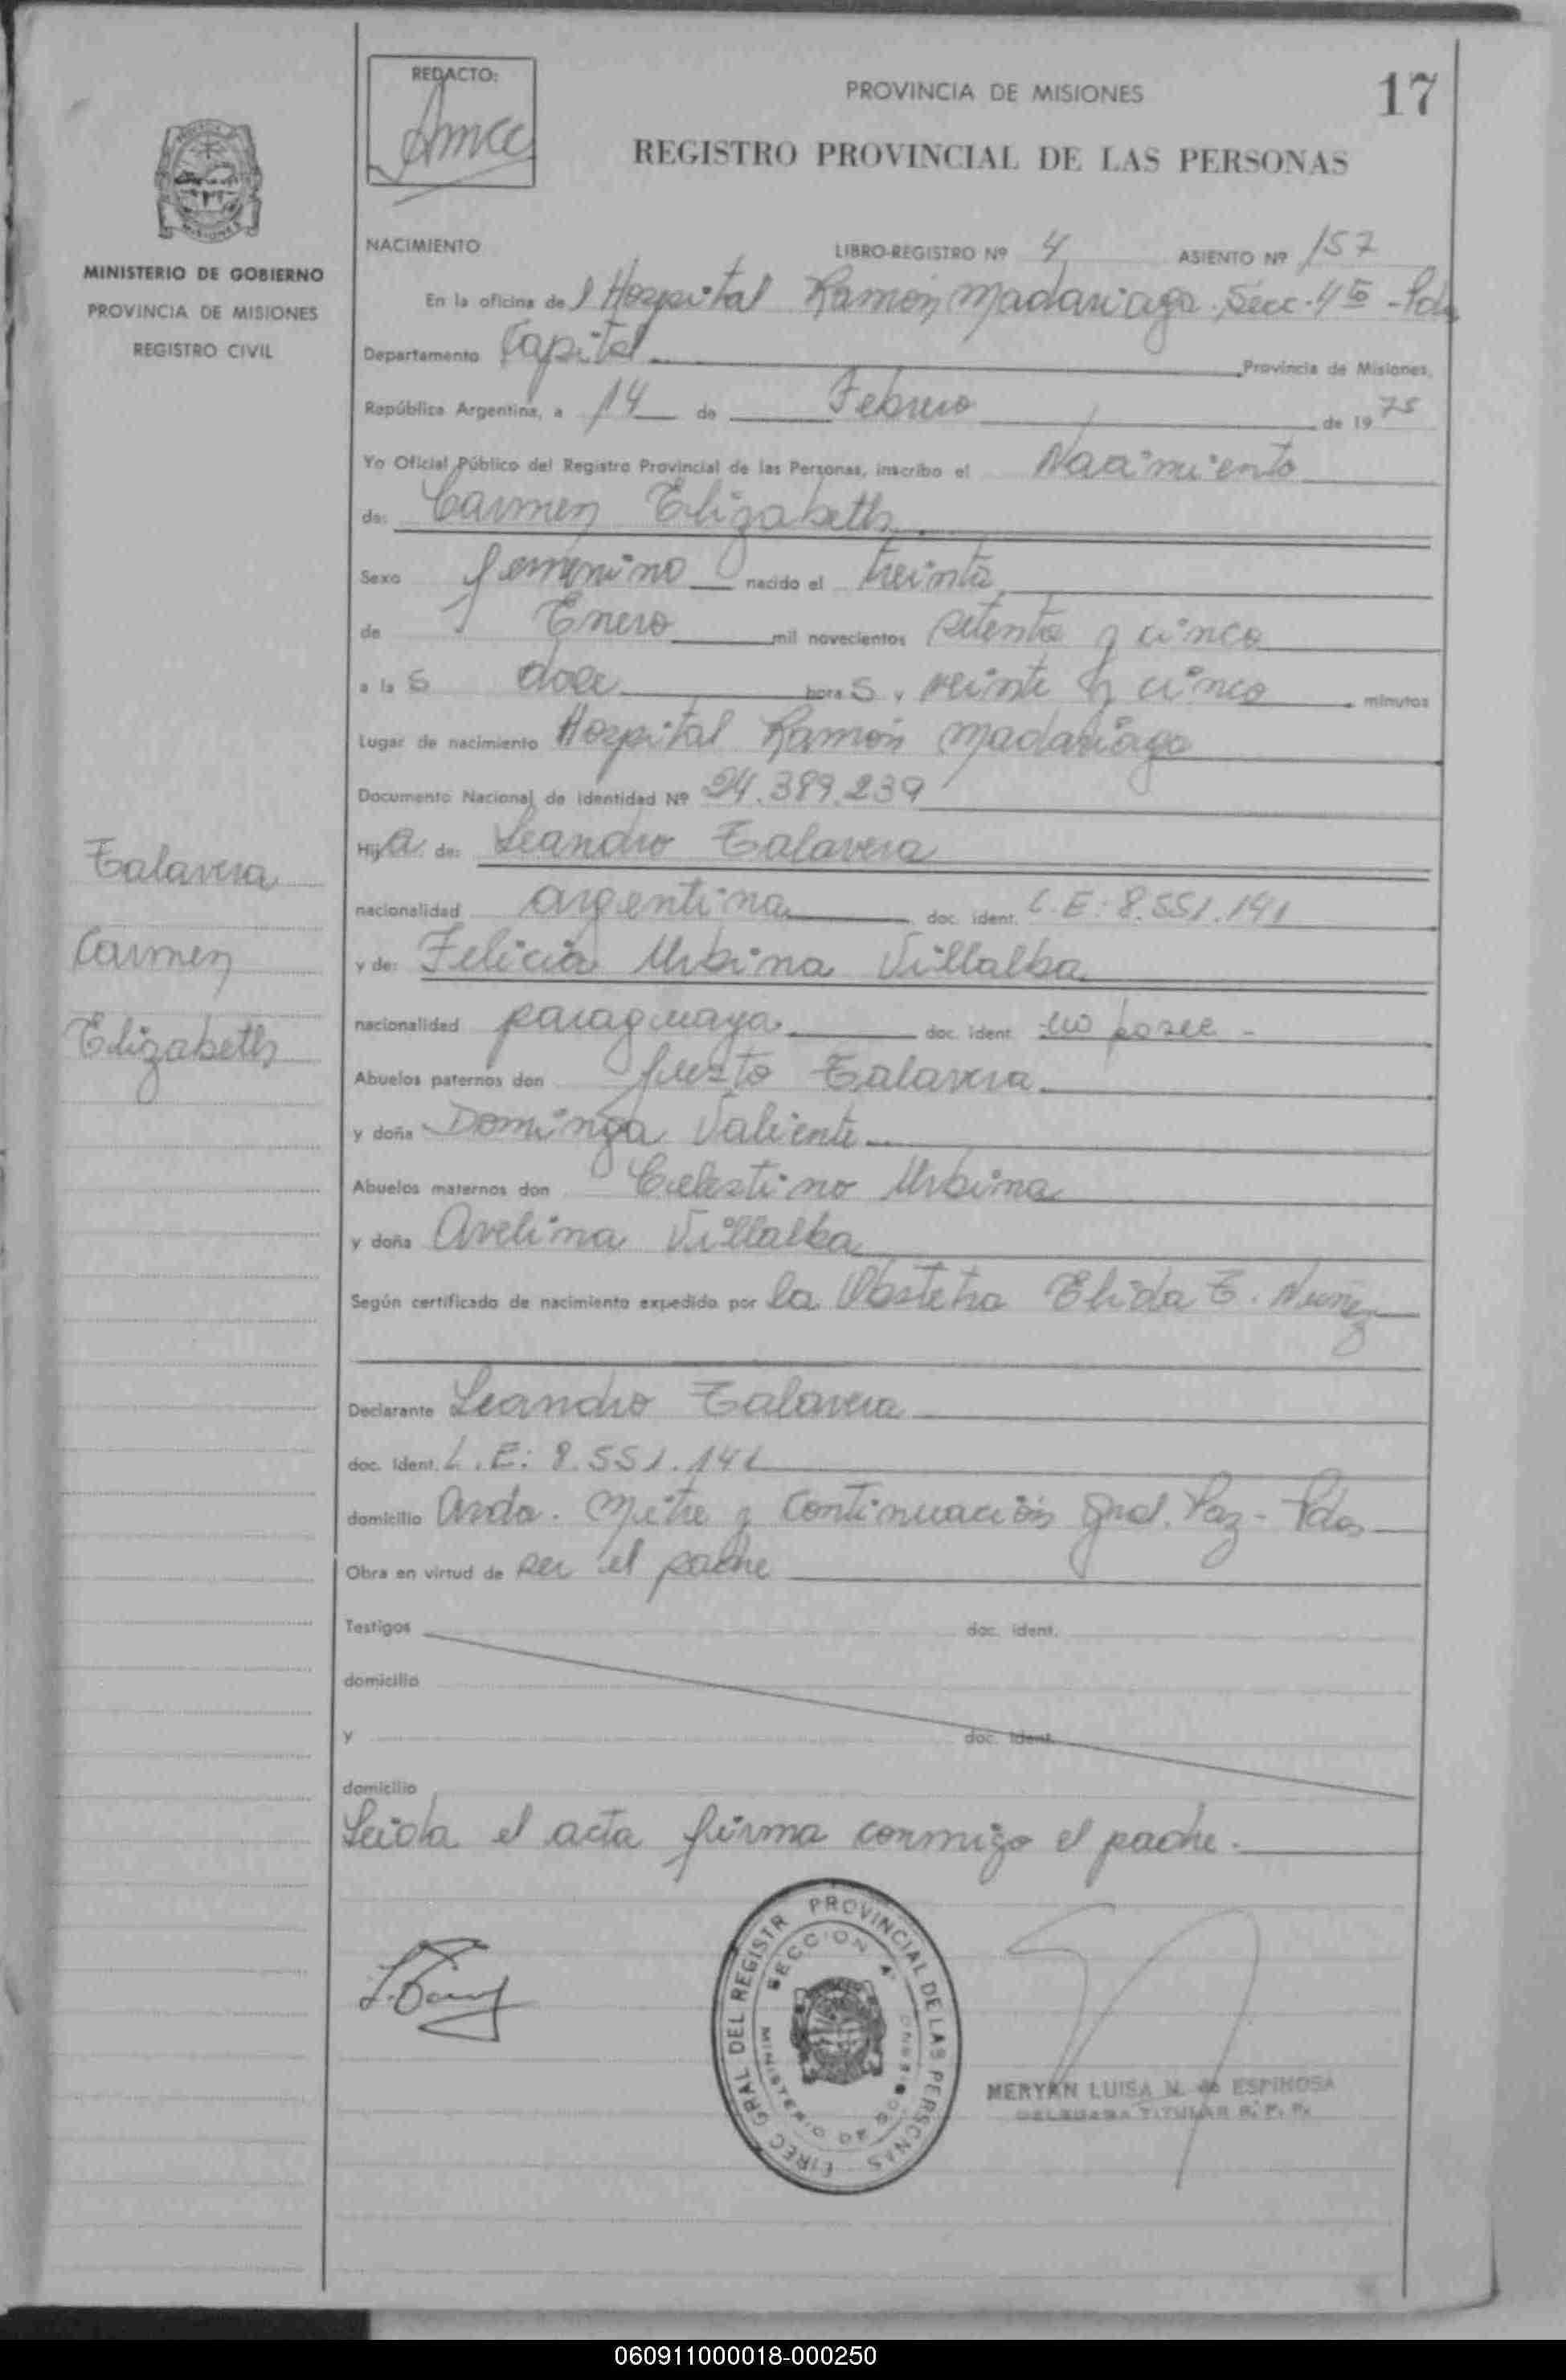 REDACTO:
Amcc
PROVINCIA DE MISIONES
17
REGISTRO PROVINCIAL DE LAS PERSONAS
MINISTERIO DE GOBIERNO
PROVINCIA DE MISIONES
REGISTRO CIVIL
NACIMIENTO LIBRO-REGISTRO Nº 4 ASIENTO Nº 157
En la oficina del Hospital Ramón Madariaga. Secc. 4ta - Pdas
Departamento Capital Provincia de Misiones,
República Argentina, a 14 de Febrero de 1975
Yo Oficial Público del Registro Provincial de las Personas, inscribo el Nacimiento
de: Carmen Elizabeth
Sexo femenino nacido el treinta
de Enero mil novecientos setenta y cinco
a las doce horas y veinte y cinco minutos
Lugar de nacimiento Hospital Ramón Madariaga
Documento Nacional de Identidad Nº 24.389.239
Hija de: Leandro Talavera
nacionalidad argentina doc. ident. L.E: 8.551.141
y de: Felicia Urbina Villalba
nacionalidad paraguaya doc. ident. no posee -
Abuelos paternos don Justo Talavera
y doña Dominga Valiente
Abuelos maternos don Celestino Urbina
y doña Avelina Villalba
Según certificado de nacimiento expedido por la Obstetra Elida E. Nuñez
Declarante Leandro Talavera
doc. ident. L.E: 8.551.141
domicilio Avda. Mitre y Continuación Gral. Paz - Pdas
Obra en virtud de ser el padre
Testigos doc. ident.
domicilio
y doc. ident.
domicilio
Leida el acta firma conmigo el padre.
Talavera
Carmen
Elizabeth
DIREC GRAL DEL REGISTR PROVINCIAL DE LAS PERSONAS
SECCION 4ª
MINISTERIO DE GOBIERNO
MERYAN LUISA N. de ESPINOSA
DELEGADA TITULAR R. P. P.
060911000018-000250